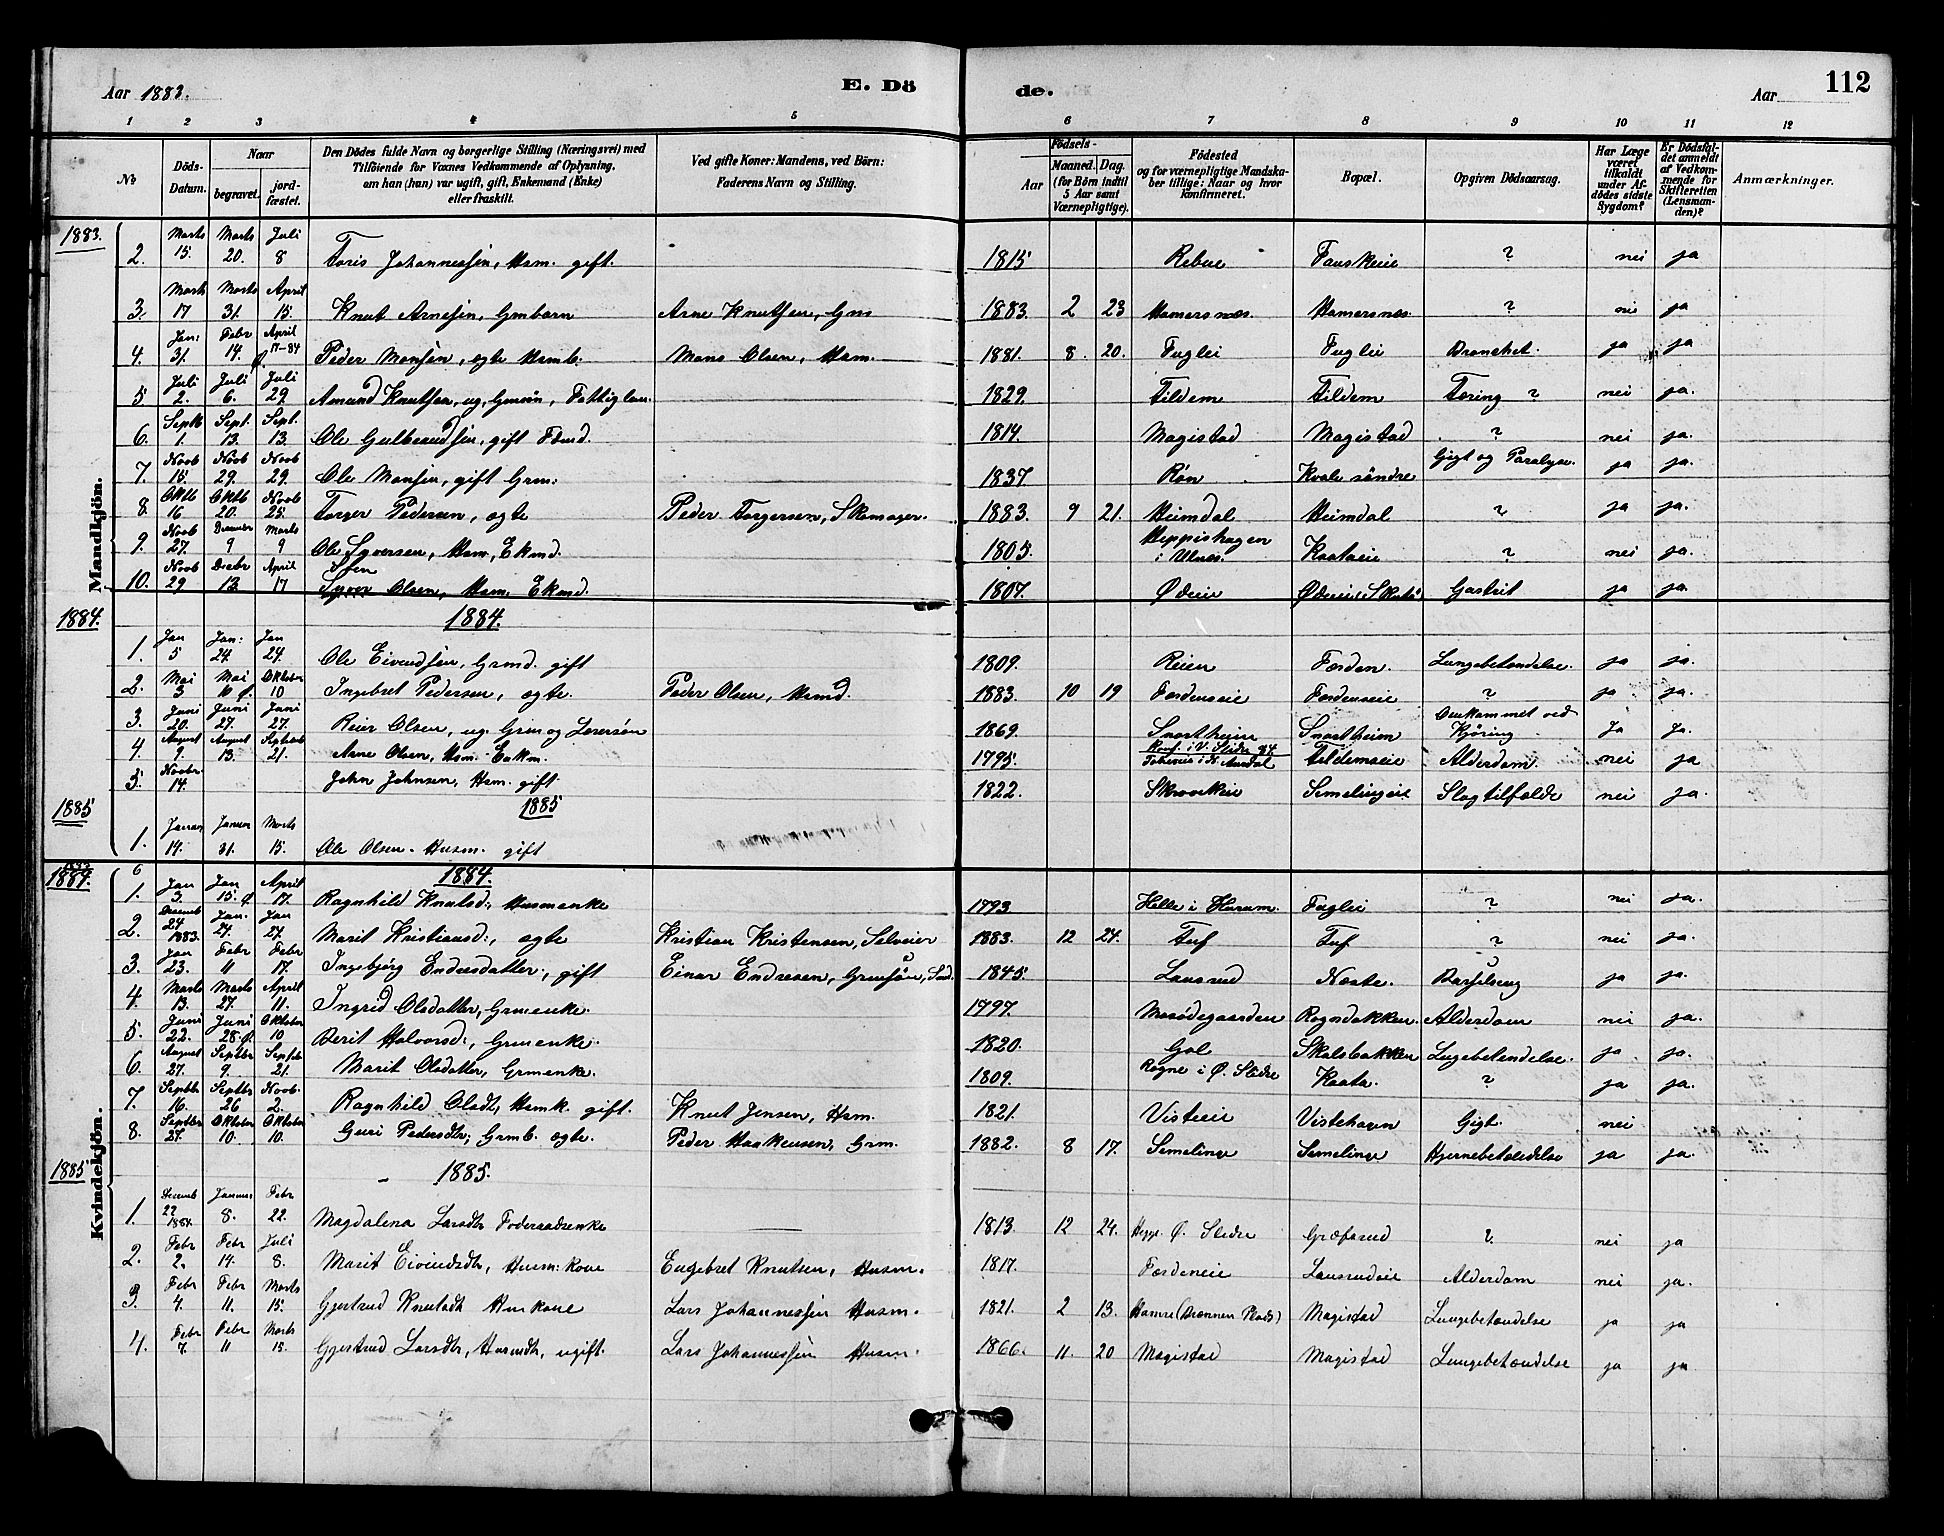 Aar 1883. E. Dö de. Aar 112
1 2 3 4 5 6 7 8 9 10 11 12
No
Döds-Datum.
Naar begravet. jordfæstet.
Den Dödes fulde Navn og borgerlige Stilling (Næringsvei) med Tilföiende for Voxnes Vedkommende af Oplysning, om han (hun) var ugift, gift, Enkemand (Enke) eller fraskilt.
Ved gifte Koner: Mandens, ved Börn: Faderens Navn og Stilling.
Födsels- Aar Maaned. Dag. (for Börn indtil 5 Aar samt Værnepligtige).
Födested og for værnepligtige Mandskaber tillige: Naar og hvor konfirmeret.
Bopæl.
Opgiven Dödsaarsag.
Har Læge været tilkaldt under Afdödes sidste Sygdom?
Er Dödsfaldet anmeldt af Vedkommende for Skifteretten (Lensmanden)?
Anmærkninger.
Mandkjön.
1883.
2. Marts 15. Marts 20. Juli 8 Toris Johannessen, Hsm. gift. 1815 Rebne Fauskeie ? nei ja
3. Marts 17 Marts 31. April 15. Knut Arnesen, Gmbarn Arne Knutsen, Gm 1883. 2 23 Hamersnæs Hamersnæs ? nei ja
4. Jan: 31. Febr 14. April 17-84 Peder Monsen, ægte Hsmb. Mons Olsen, Hsm. 1881. 8. 20. Fuglei Fuglei Bronchet. ja ja
5 Juli 2. Juli 6. Juli 29 Amund Knutsen, ug. Fattiglem. 1829. Fildem Fildem Tæring ? nei ja.
6. Septb 1. Sept. 13. Sept. 13. Ole Gulbrandsen, gift 1814. Magistad Magistad ? nei ja.
7. Novb 15. Novb 29. Novb 29. Ole Monsen, gift Grm: 1837. Røn Kvale söndre Gigt og Paralyse. ja ja.
8. Oktb 16 Oktb 20. Novb 25. Torger Pedersen, ægte Peder Torgersen, Skomager. 1883. 9 21. Heimdal Heimdal ? ja ja.
9. Novb 27. December 9 Marts 9 Ole Syversen, Hsm, Ekmd. 1805. i Ulnæs. Kaataeie ? nei ja.
10. Novb 29 Decbr 13. April 17 Syver Olsen, Hsm. Ekmd. 1807. Ødeeie Gastrit ja ja.
1884. 1884.
1. Jan 5 Jan: 24. Jan 24. Ole Eivendsen, Grmd. gift 1809. Reien Færden. Lungebetændelse. ja ja.
2. Mai 3 Mai 10 Oktober 10 Ingebret Pedersen, ægte. Peder Olsen, Hsmd. 1883. 10 19 Færdeneie Færdeneie ? ja ja.
3. Juni 20. Juni 27. Juni 27. Reier Olsen, ug. 1869. Snortheim Snortheim Omkommet ved Kjöring Ja Ja.
4. August 9 August 13. Septemb 21. Arne Olsen, Hsm. Enkm. 1795. Konf. i V. Slidre Fildemeie Alderdom. nei ja
5. Novbr 14. John Johnsen, Hsm. gift. 1822. Semelingeie Slagtilfælde nei ja.
1885 1885
1. Januar 14. Januar 31. Marts 15. Ole Olsen. Husm. gift
Kvindekjön.
1884. 1884.
1. Jan 3. Jan 15. April 17. Ragnhild Knutsd: Husmenke 1793. Helle i Hurum. Fuglei ? nei ja.
2. Decemb 24 1883. Jan. 27. Jan 27. Marit Kristiansd:, ægte Kristian Kristensen, Selveier 1883. 12 24. Tuf Tuf ? nei ja.
3. Jan 23. Febr 11 Febr 17. Ingebjörg Endresdatter., gift Einar Endresen, 1845. Lausrud Næste. Barselseng ja ja
4. Marts 13. Marts 27. April 11. Ingrid Olsdatter, Grmenke. 1797. Mosødegaarden Rogndokken. Alderdom nei ja.
5. Juni 22. Juni 28. Oktober 10 Berit Halvorsd:, Grmenke. 1820. Gol Skalsbakken Lugebetendelse. ja ja.
6. August 27. Septbr 9. Septb 21. Marit Olsdatter, Grmenke. 1809. Rogne i Ø. Slidre Kaata. ? ja ja.
7. Septbr 16. Septbr 26 Novb. 2. Ragnhild Olsdt, Hsmk. gift. Knut Jensen, Hsm. 1821. Visteeie Vistehagen Gigt. nei
8. Septbr 27. Oktober 10. Oktober 10. Guri Pedersdtr, Grmb. ægte. Peder Haakensen, Grm. 1882. 8 17. Semelinge Semelinge Hjernebetændelse ja ja.
1885 1885.
1. Decemb 22 1884. Januar 8. Febr 22. Magdalena Larsdtr Föderaadsenke 1813. 12 24. Hegge. Ø. Slidre Græfsrud ? nei ja
2. Febr 2. Febr 14. Juli 8. Marit Eivindsdtr, Husm: kone Engebret Knutsen, Husm. 1817. Færdeneie Lausrudeie Alderdom nei ja.
3. Febr 4. Febr 11. Marts 15. Gjertrud Knutsdt Huskone Lars Johannessen Husm. 1821. 2 13. Hamre Magistad Lungebetændelse ja ja
4. Febr 7. Febr 11 Marts 15. Gjertrud Larsdtr, Husmdtr, ugift. Lars Johannessen Husm. 1866. 11. 20 Magistad Magistad Lungebetændelse ja ja